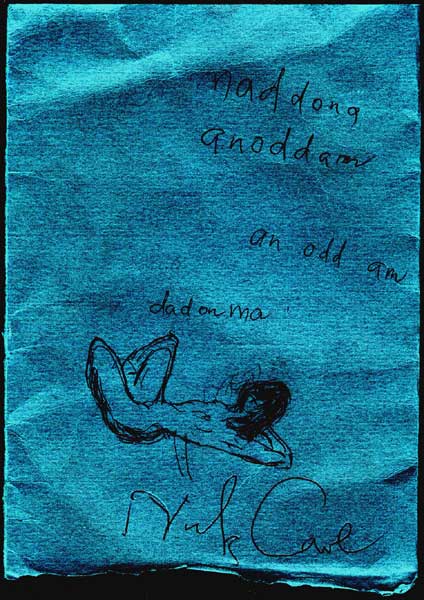 naddona
anoddam
an odd am
dadonma
Nick Cave